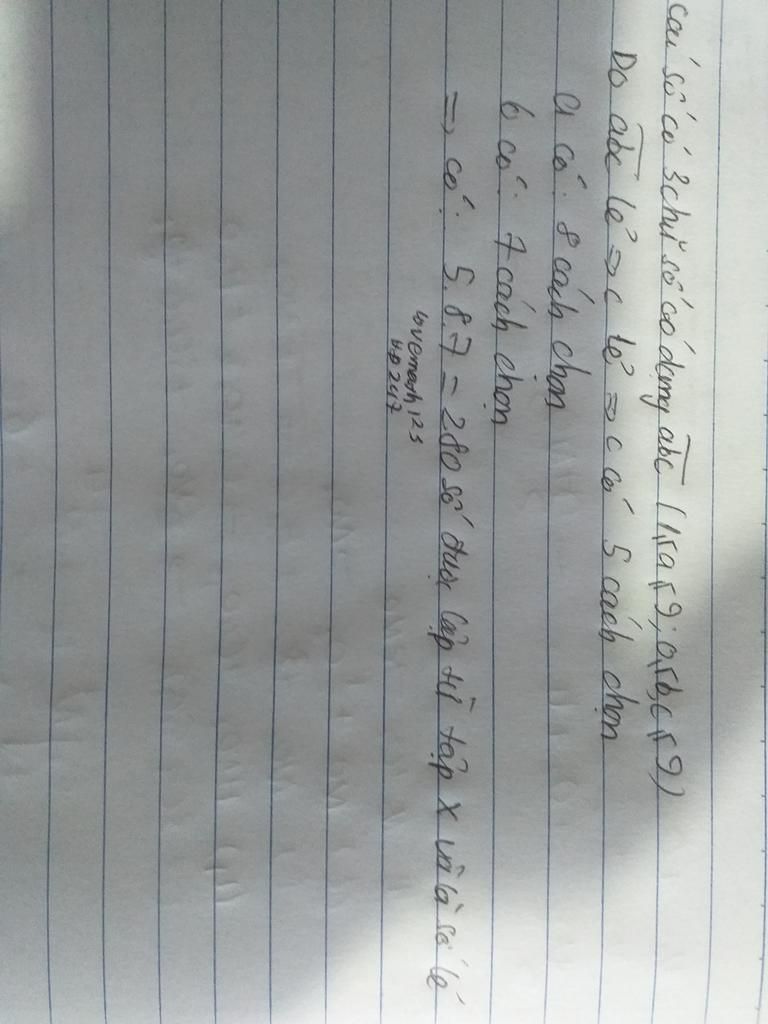 các số có 3 chữ số có dạng abc (1≤a≤9; 0≤b,c≤9)
Do abc lẻ => c lẻ => c có 5 cách chọn
a có: 8 cách chọn
b có: 7 cách chọn
=> có: 5.8.7 = 280 số được lập từ tập X và là số lẻ
lovemath123